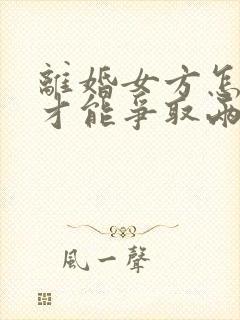 離婚女方怎
才能爭取兩
風一聲